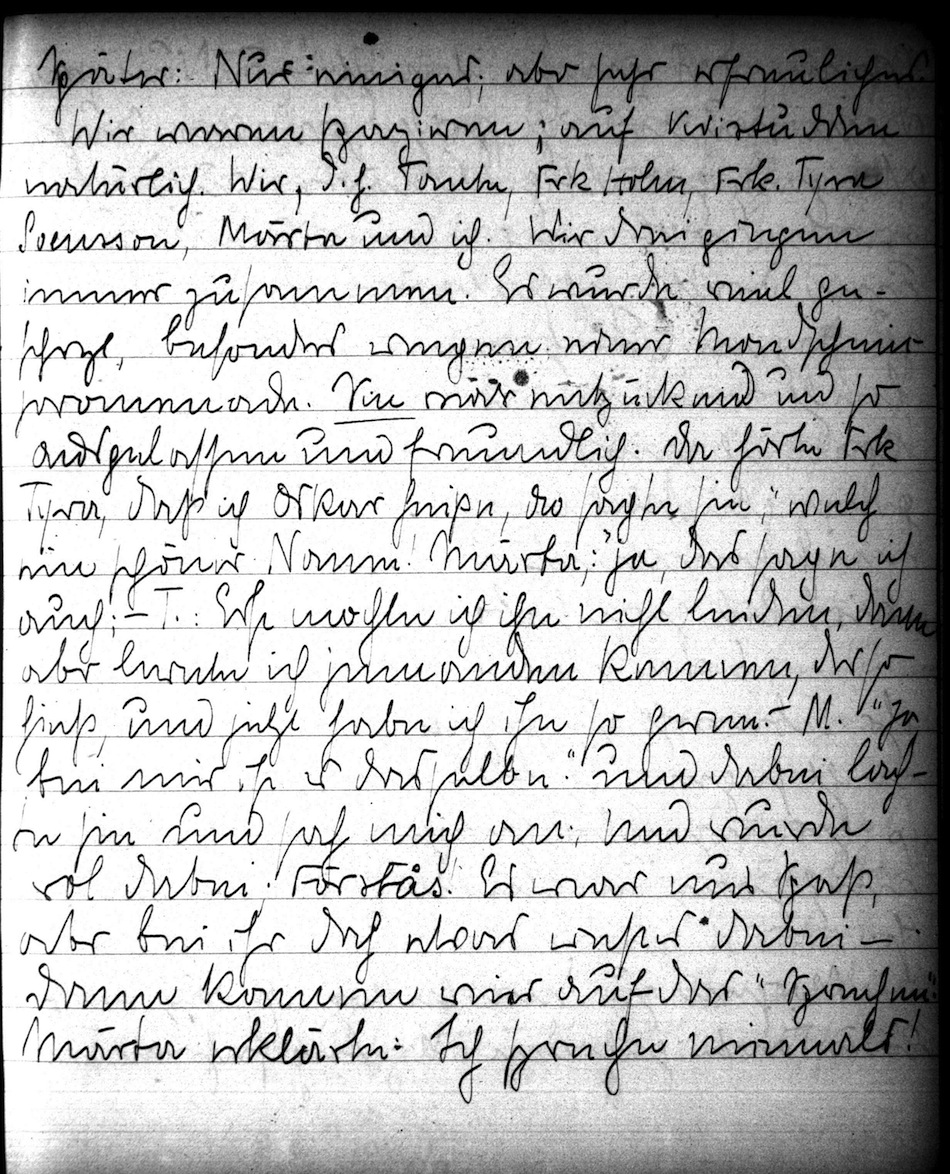 Später: Nur einiges, aber sehr erfreuliches.
Wir waren spazieren; auf Kvistudden
natürlich. Wir, d.h. Tante, Frk Holm, Frk. Tyra
Svensson, Märta und ich. Wir drei gingen
immer zusammen. Es wurde viel ge-
scherzt, besonders wegen einer Mondschein-
promenade. Sie war entzückend und so
ausgelassen und freundlich. Da hörte Frk
Tyra, daß ich Oskar heiße, da sagte sie; "welch
ein schöner Name! Märta: "Ja, das sage ich
auch; – T.: Erst mochte ich ihn nicht leiden, dann
aber lernte ich jemanden kennen, der so
hieß, und jetzt habe ich ihn so gerne. – M. "Ja
bei mir ist es dasselbe." und dabei lach-
te sie und sah mich an; und wurde
rot dabei. Förstås! Es war nur Spaß,
aber bei ihr doch etwas wahres dabei –
dann kamen wir auf das "
Märta erklärte: Ich niemals!